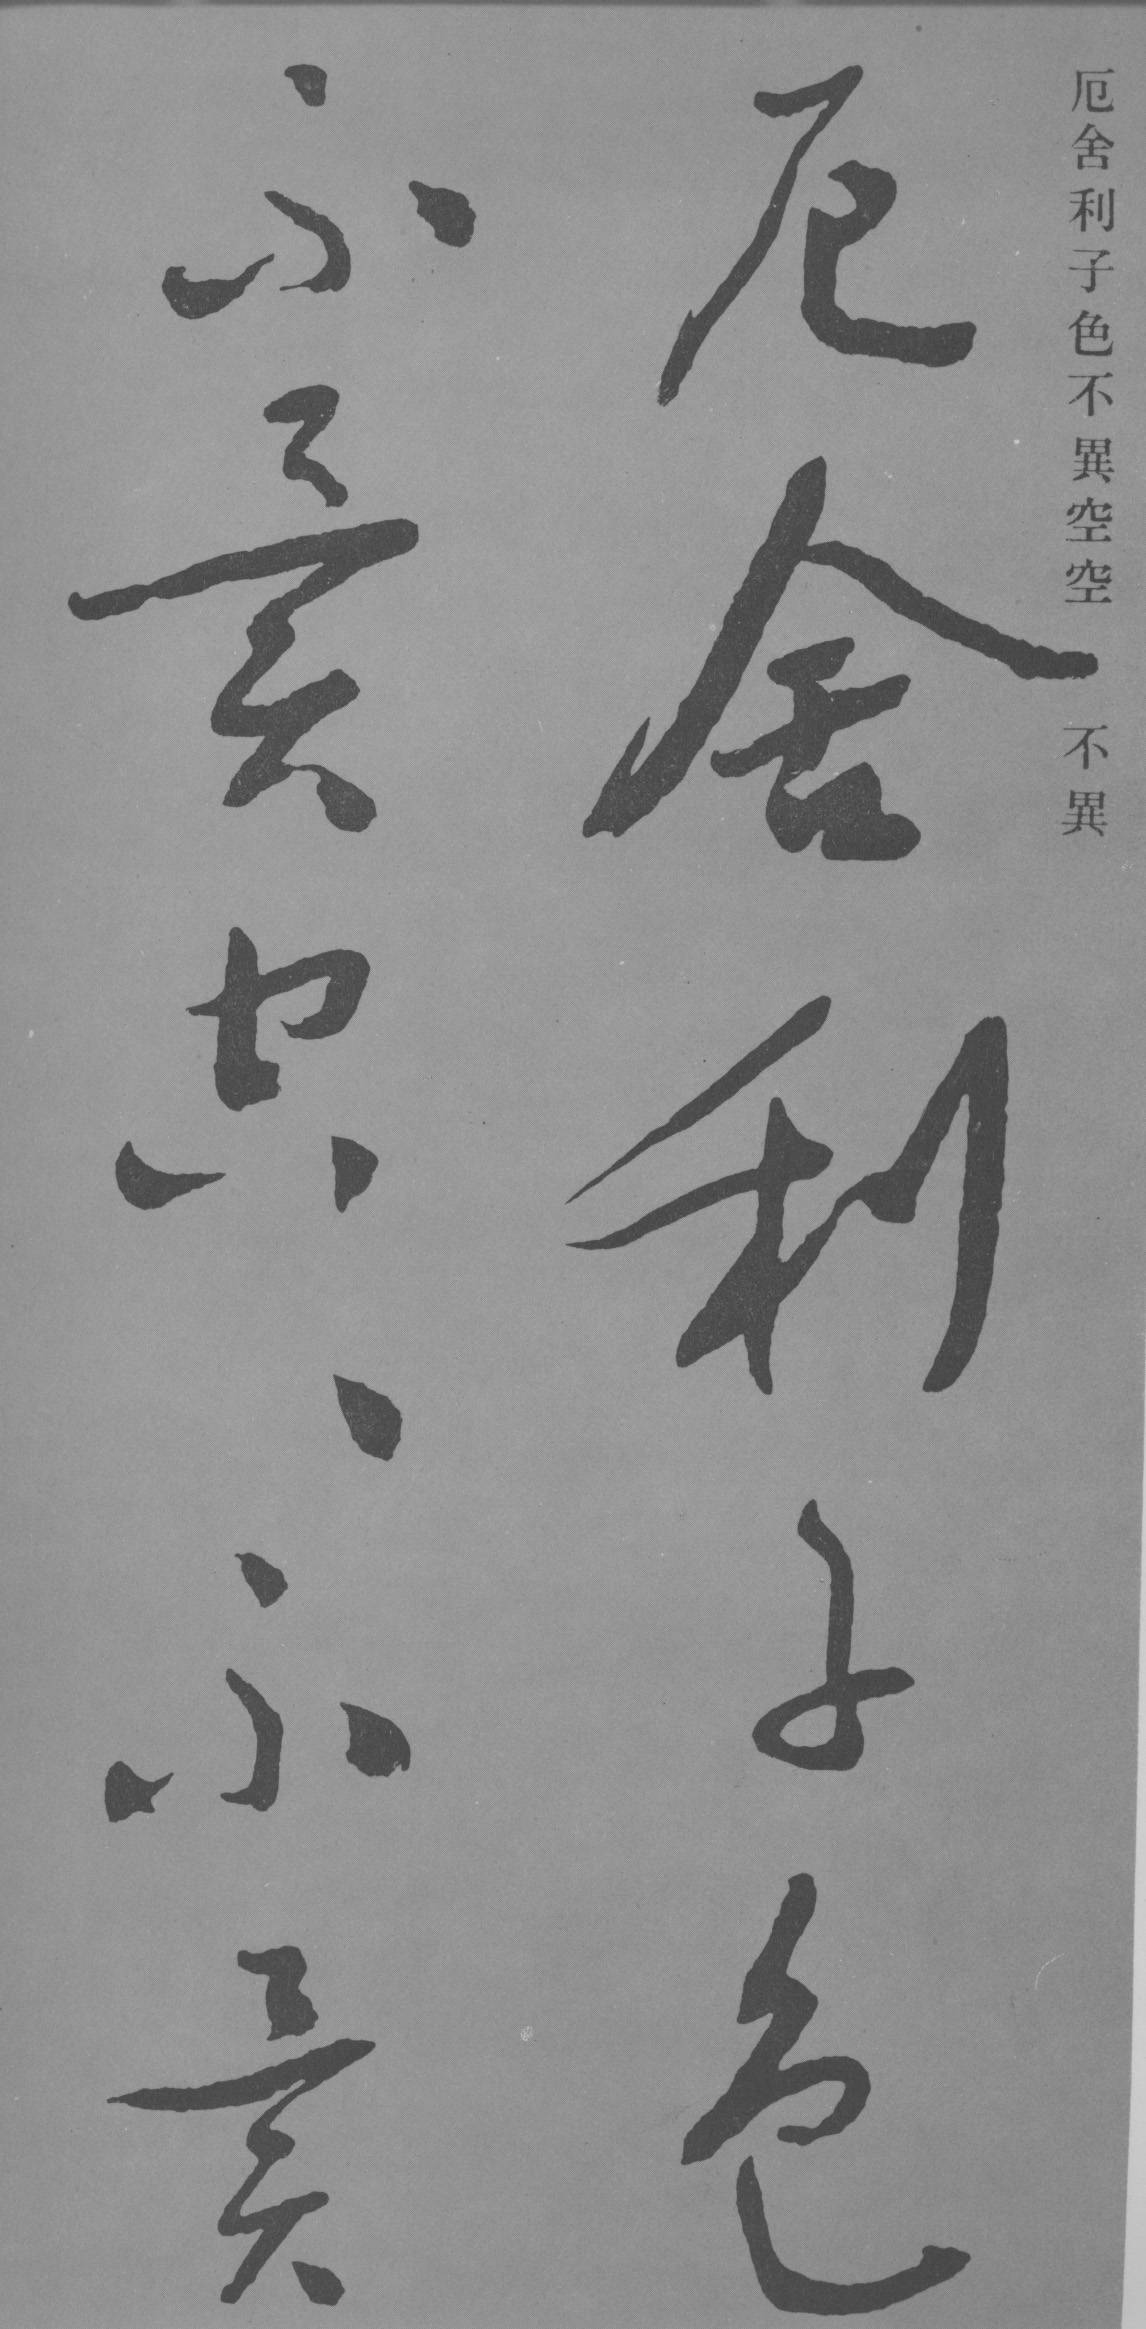 厄舍利子色不異空空 不異
厄舍利子色
不異空〻不異